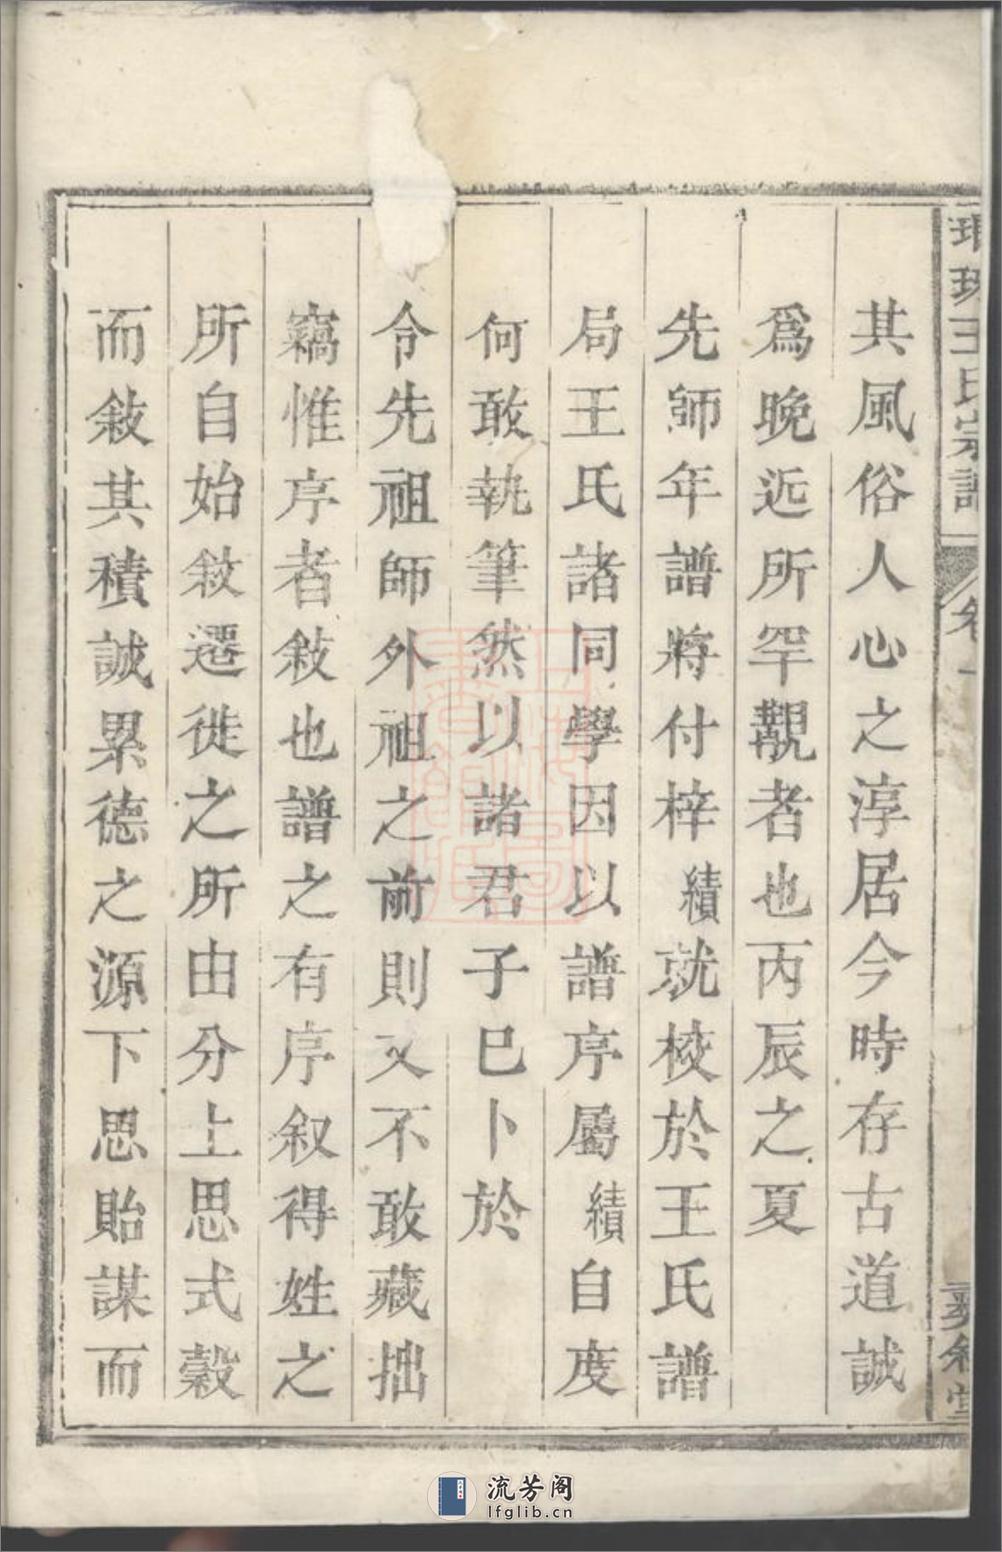 琅琊王氏宗譜
卷一
其風俗人心之淳居今時存古道誠
爲晚近所罕覯者也丙辰之夏
先師年譜將付梓績就校於王氏譜
局王氏諸同學因以譜序屬績自度
何敢執筆然以諸君子巳卜於
令先祖師外祖之前則又不敢藏拙
竊惟序者敍也譜之有序叙得姓之
所自始敘遷徙之所由分上思式穀
而敍其積誠累德之源下思貽謀而
流芳阁
lfglib.cn